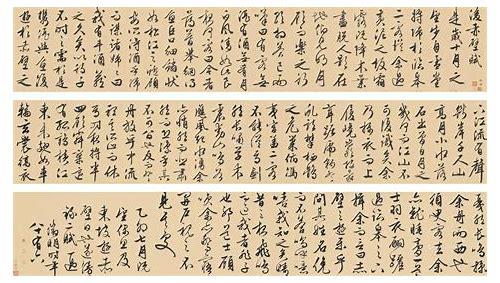 後赤壁賦
是歲十月之
望步自雪堂
將歸於臨皋
二客從余過
黃泥之坂霜
露既降木葉
盡脫人影在
地仰見明月
顧而樂之行
歌相答已而
歎曰有客無
酒有酒無肴月白
風清如此良
夜何客曰今者
薄暮舉網得
魚巨口細鱗狀
如松江之鱸顧
安所得酒乎歸
而謀諸婦婦曰
我有斗酒藏
之久矣以待子
不時之需於是
攜酒與魚復
遊於赤壁之
下江流有聲
斷岸千尺山
高月小水落
石出曾日月之
幾何而江山不
可復識矣余
乃攝衣而上
履巉巖披蒙
茸踞虎豹登
虬龍攀棲鶻
之危巢俯馮
夷之幽宮蓋二客
不能從焉劃
然長嘯草木
震動山鳴谷
應風起水湧余
亦悄然而悲肅
然而恐凜乎其
不可留也反而登
舟放乎中流
聽其所止而休
焉時夜將半
四顧寂寥適
有孤鶴橫江
東來翅如車
輪玄裳縞衣
戛然長鳴掠
余舟而西也
須臾客去余
亦就睡夢一道
士羽衣蹁躚
過臨皋之下
揖余而言曰赤
壁之遊樂乎
問其姓名俛
而不答嗚呼噫
嘻我知之矣疇
昔之夜飛鳴
而過我者非子
也耶道士顧
笑余亦驚悟
開戶視之不
見其處
乙卯七月既
望
東坡
壁
二賦
徵明時年
八十有六